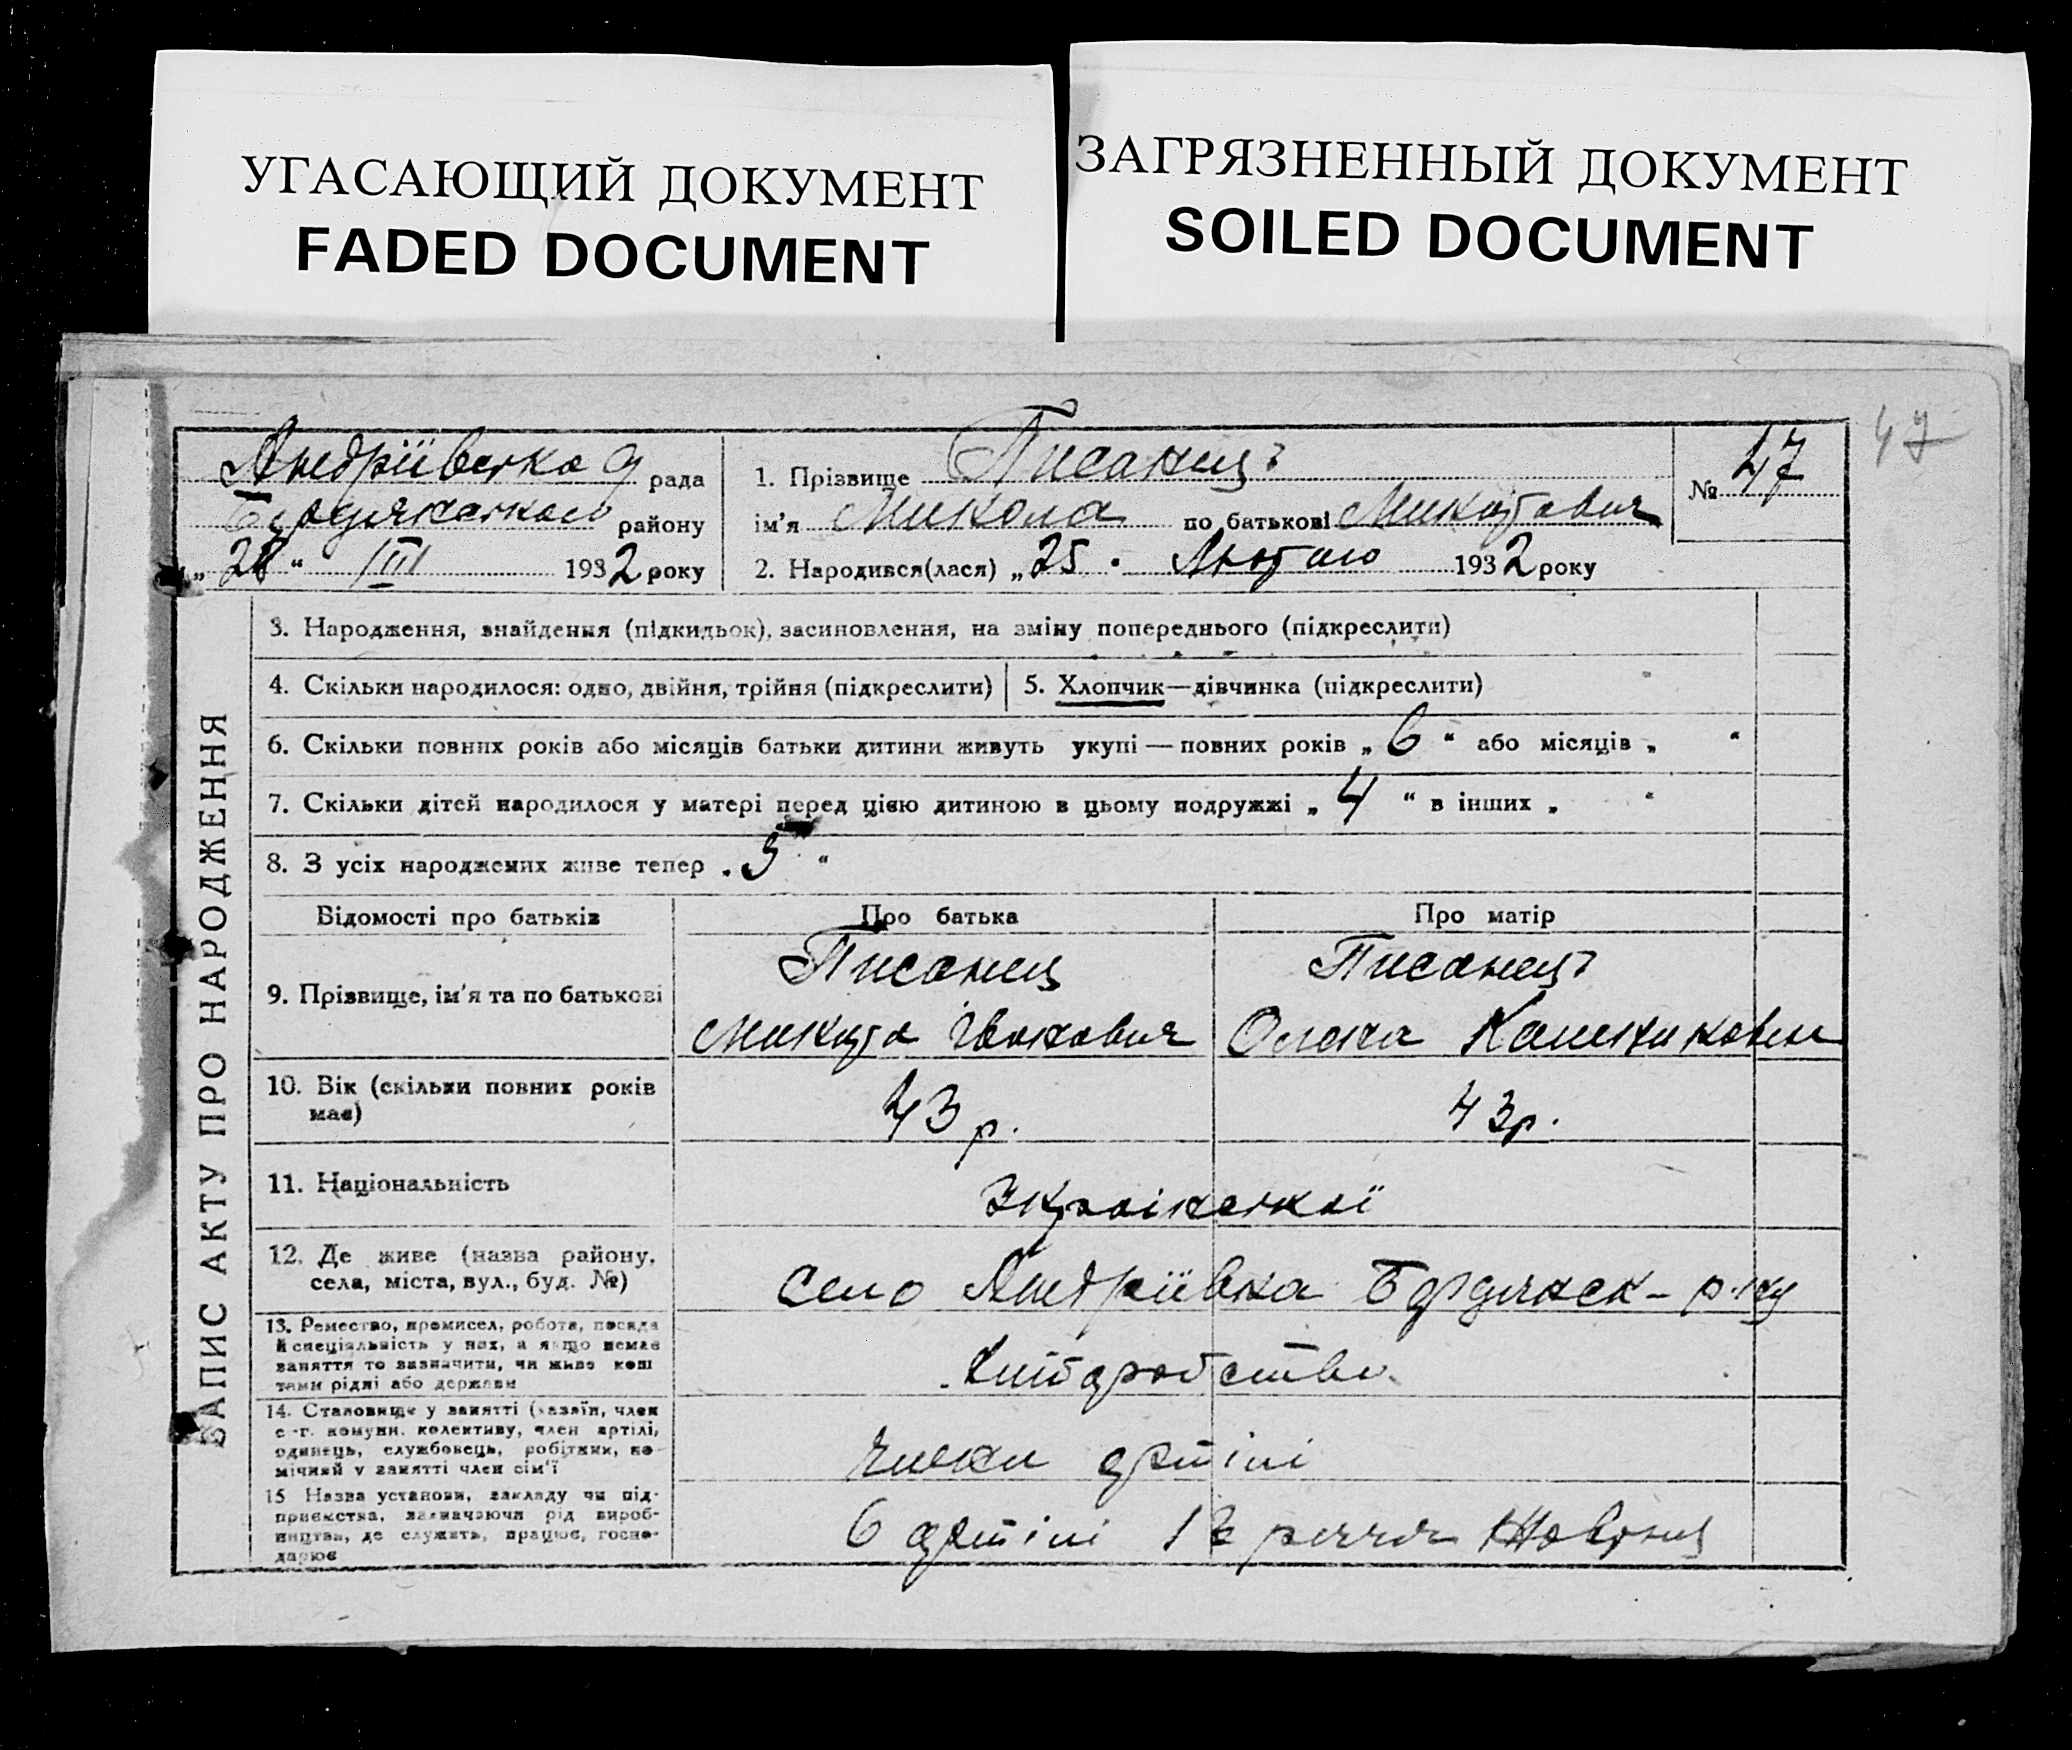 УГАСАЮЩИЙ ДОКУМЕНТ
FADED DOCUMENT
ЗАГРЯЗНЕННЫЙ ДОКУМЕНТ
SOILED DOCUMENT
47
Андріївська рада
Бердянського району
„28“ III 1932 року
1. Прізвище Писанець
ім'я Микола по батькові Микитович
2. Народився(лася) „25. Лютого 1932 року
№ 47
ЗАПИС АКТУ ПРО НАРОДЖЕННЯ
3. Народження, знайдення (підкидьок), засиновлення, на зміну попереднього (підкреслити)
4. Скільки народилося: одно, двійня, трійня (підкреслити)
5. Хлопчик—дівчинка (підкреслити)
6. Скільки повних років або місяців батьки дитини живуть укупі — повних років „ 6 “ або місяців „ “
7. Скільки дітей народилося у матері перед цією дитиною в цьому подружжі „ 4 “ в інших „ “
8. З усіх народжених живе тепер „ 5 “
Відомості про батьків
Про батька
Про матір
9. Прізвище, ім'я та по батькові
Писанец
Микита Іванович
Писанець
Олена
10. Вік (скільки повних років має)
43 р.
43 р.
11. Національність
Української
12. Де живе (назва району, села, міста, вул., буд. №)
село Андріївка Бердянск- р-ну
13. Ремество, промисел, робота, посада
й спеціяльність у них, а якщо немає
заняття то зазначити, чи живе кош
тами рідні або держави
Хліборобство
14. Становище у занятті (хазяїн, член
с.-г. комуни, колективу, член артілі,
одинець, службовець, робітник, по-
мічний у занятті член сім'ї
члени артілі
15 Назва установи, закладу чи під-
приємства, зазначаючи рід вироб-
ництва, де служить, працює, госпо-
дарює
В артілі 12 річчя Жовтня